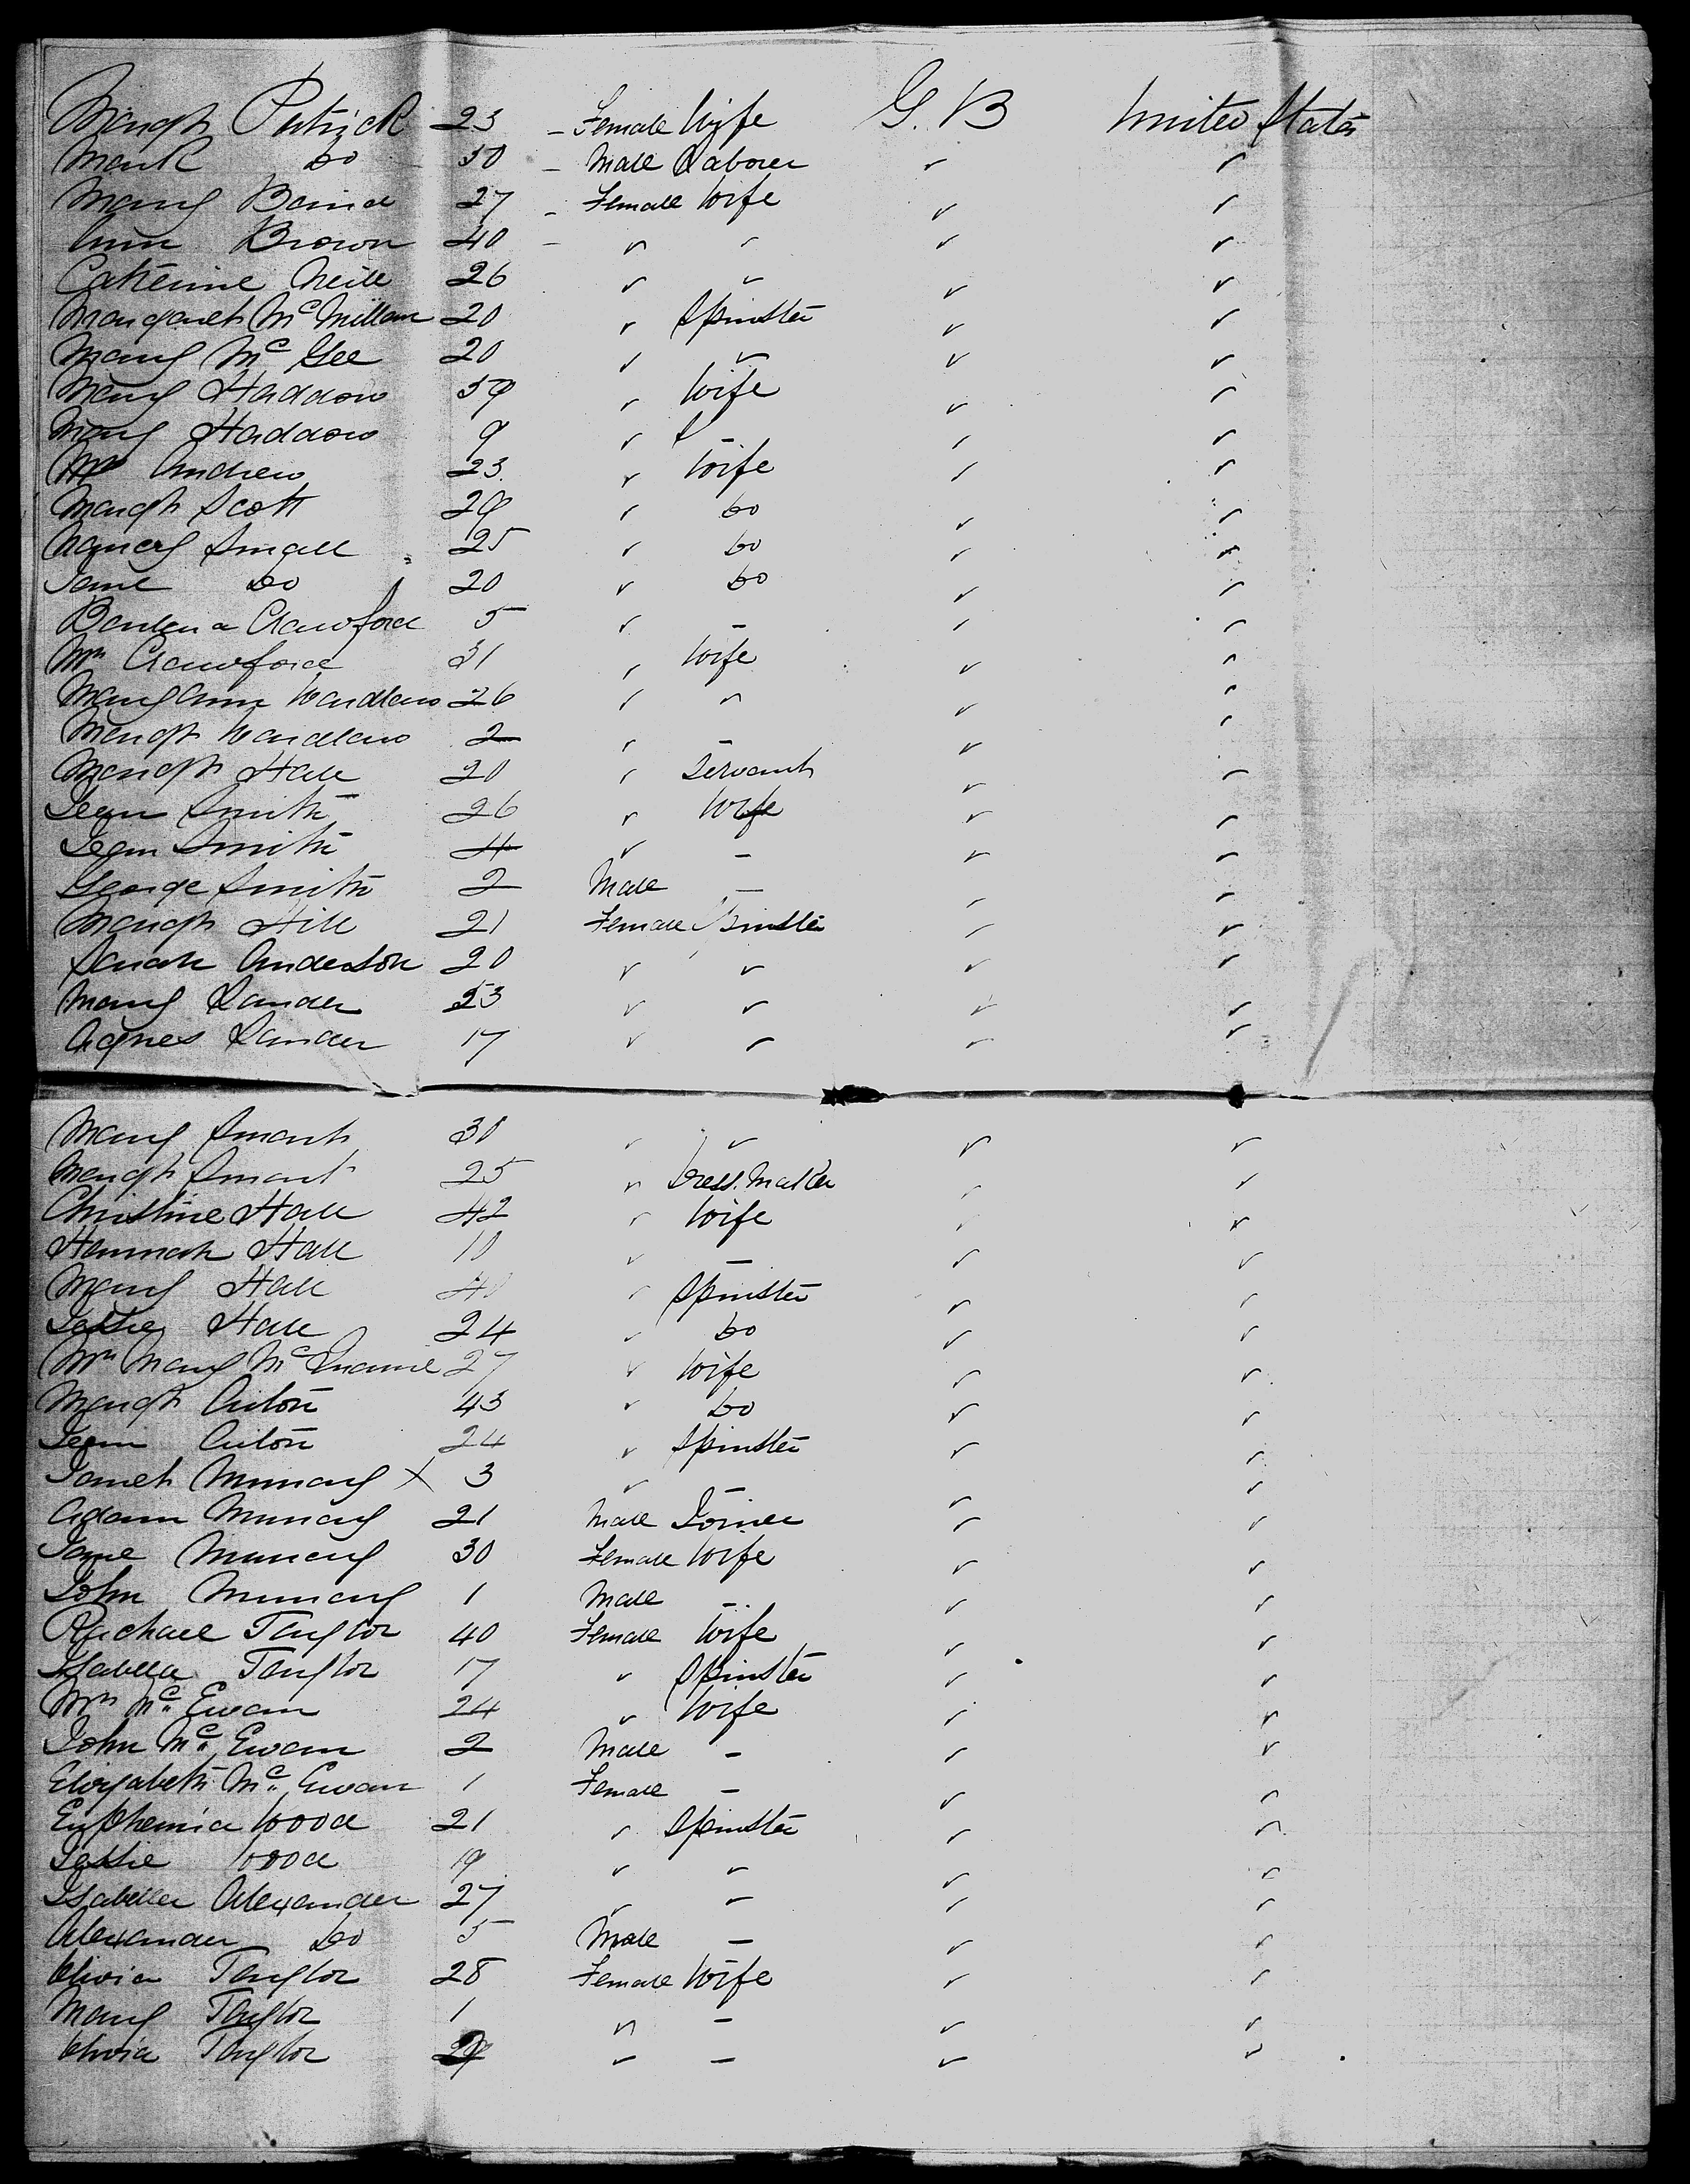 Margt Patrick 23 - Female Wife G.B United States
Mark Do 30 - Male Laborer " "
Mary Baird 27 - Female Wife " "
Ann Brown 40 - " " " "
Catherine Neill 26 " " " "
Margaret McMillan 20 " Spinster " "
Mary McGee 20 " " " "
Mary Haddow 39 " Wife " "
Mary Haddow 9 " " "
Mrs Andrew 23 " Wife " "
Margt Scott 29 " Do " "
Nancy Small 25 " Do " "
Jane Do 20 " Do " "
Crawford 5 " - " "
Mrs Crawford 31 " Wife " "
Maryann Wardlaw 26 " " " "
Margt Wardlaw 2 " - " "
Margt Hall 20 " Servant " "
Jean Smith 26 " Wife " "
Jean Smith 4 " - " "
George Smith 2 Male - " "
Margt Hill 21 Female Spinster " "
Sarah Anderson 20 " " " "
Mary Lauder 23 " " " "
Agnes Lauder 17 " " " "
Mary Smart 30 " " " "
Margt Smart 25 " Dress Maker " "
Christine Hall 42 " Wife " "
Hannah Hall 10 " - " "
Mary Hall 40 " Spinster " "
Jessie Hall 24 " Do " "
Mrs Mary 27 " Wife " "
Margt Aiton 43 " Do " "
Jean Aiton 24 " Spinster " "
Janet Murray X 3 " - " "
Adam Murray 21 Male Joiner " "
Jane Murray 30 Female Wife " "
John Murray 1 Male - " "
Rachael Taylor 40 Female Wife " "
Isabella Taylor 17 " Spinster " "
Mrs McEwan 24 " Wife " "
John McEwan 2 Male - " "
Elizabeth McEwan 1 Female - " "
Euphemia Wood 21 " Spinster " "
Jessie Wood 19 " " " "
Isabella Alexander 27 " " " "
Alexander Do 5 Male - " "
Olivia Taylor 28 Female Wife " "
Mary Taylor 1 " - " "
Olivia Taylor " - " "